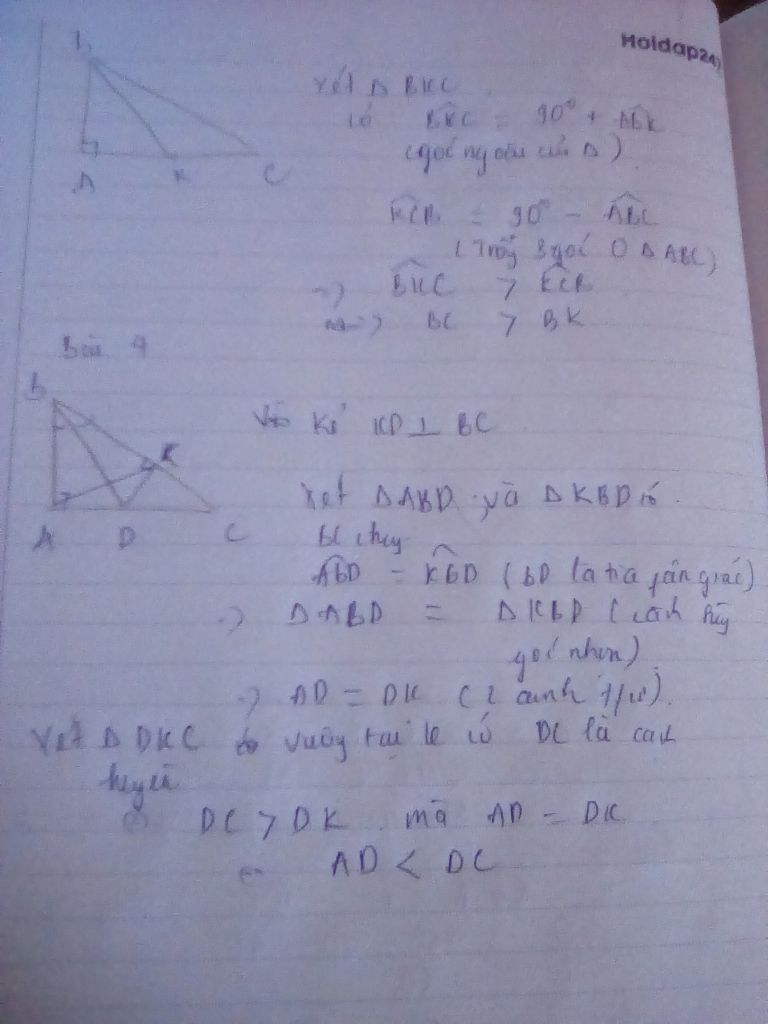 Hoidap24)
B
A K C
Xét Δ BKC
có BKC = 90° + ABK
(góc ngoài của Δ)
KCB = 90° - ABC
(Tổng 3 góc Δ ABC)
=> BKC > KCB
=> BC > BK
Bài 4
B
K
A D C
Kẻ KD ⊥ BC
Xét ΔABD và ΔKBD có
chung
ABD = KBD (BD là tia fân giác)
=> ΔABD = ΔKBD (cạnh
góc nhọn)
=> AD = DK (2 cạnh t/ứ)
Xét Δ DKC vuông tại K có DC là cạnh
huyền
DC > DK mà AD = DK
AD < DC